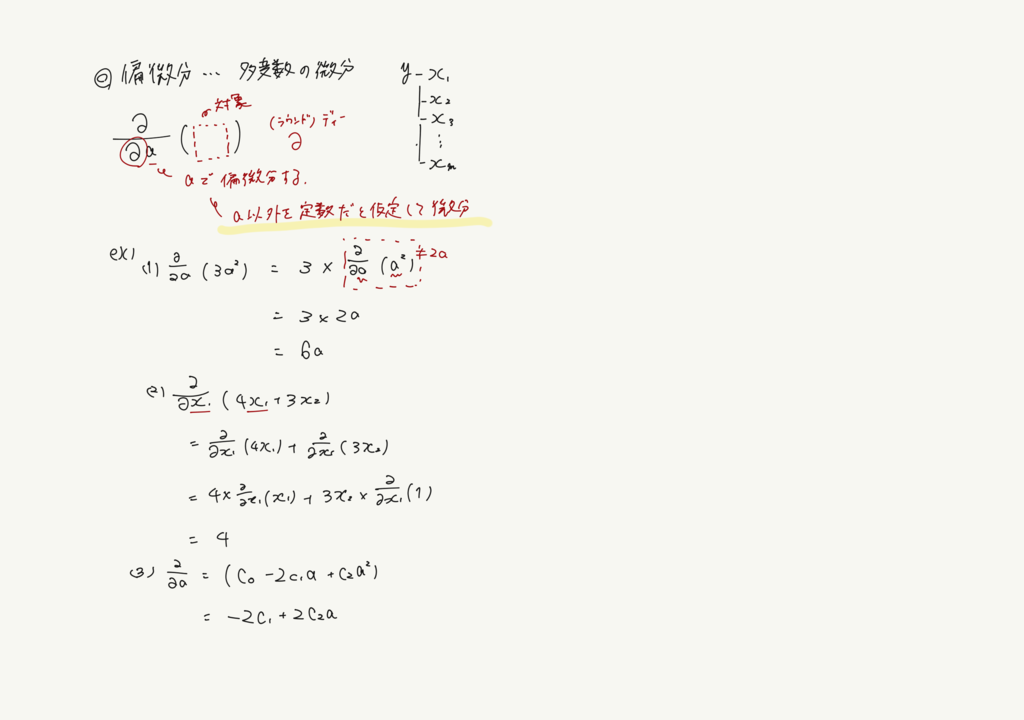 ◎ 偏微分 … 多変数の微分
y - x₁
- x₂
- x₃
⋮
- xₘ
対象
∂/∂a ( )
(ラウンド) ディー
∂
aで偏微分する.
a以外を定数だと仮定して微分
ex)
(1) ∂/∂a (3a²) = 3 × ∂/∂a (a²) ≠2a
= 3 × 2a
= 6a
(2) ∂/∂x₁ (4x₁ + 3x₂)
= ∂/∂x₁ (4x₁) + ∂/∂x₁ (3x₂)
= 4 × ∂/∂x₁ (x₁) + 3x₂ × ∂/∂x₁ (1)
= 4
(3) ∂/∂a = (C₀ - 2c₁a + C₂a²)
= -2C₁ + 2C₂a